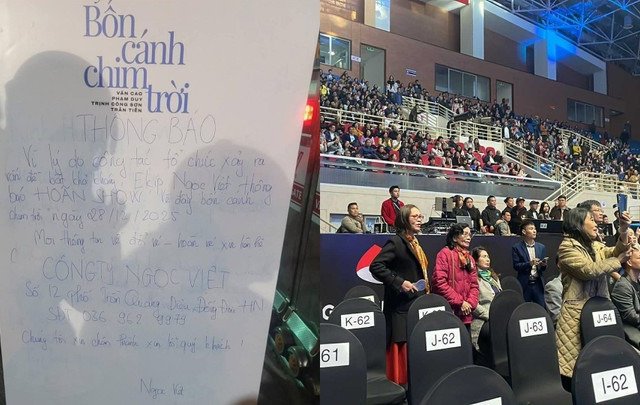 Bốn
cánh
chim
trời
VĂN CAO
PHẠM DUY
TRỊNH CÔNG SƠN
TRẦN TIẾN
THÔNG BÁO
Vì lý do công tác tổ chức xảy ra
vấn đề bất khả kháng Ekip Ngọc Việt thông
báo HOÃN SHOW
ngày 28/12/2025
Mọi thông tin về đổi vé - hoàn vé xin liên hệ
CÔNG TY NGỌC VIỆT
Số 12 phố Trần Quang Diệu Đống Đa HN
Chúng tôi xin chân thành xin lỗi quý khách!
Ngọc Việt
K-62
61
J-62
J-63
J-64
I-62